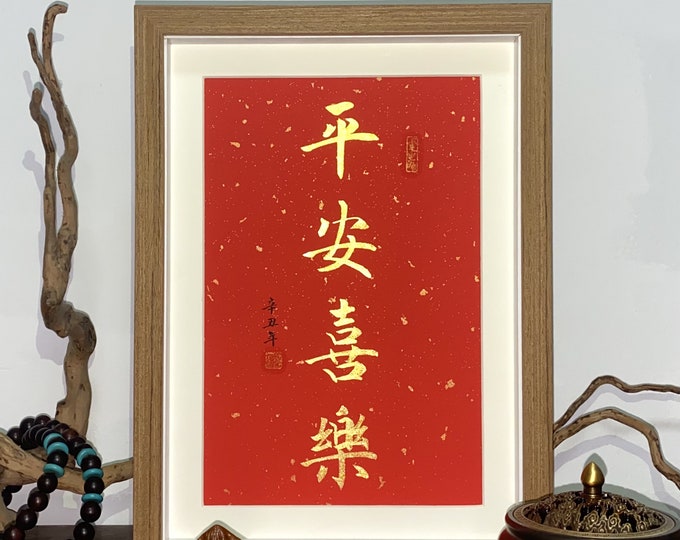 平安喜樂
辛丑年